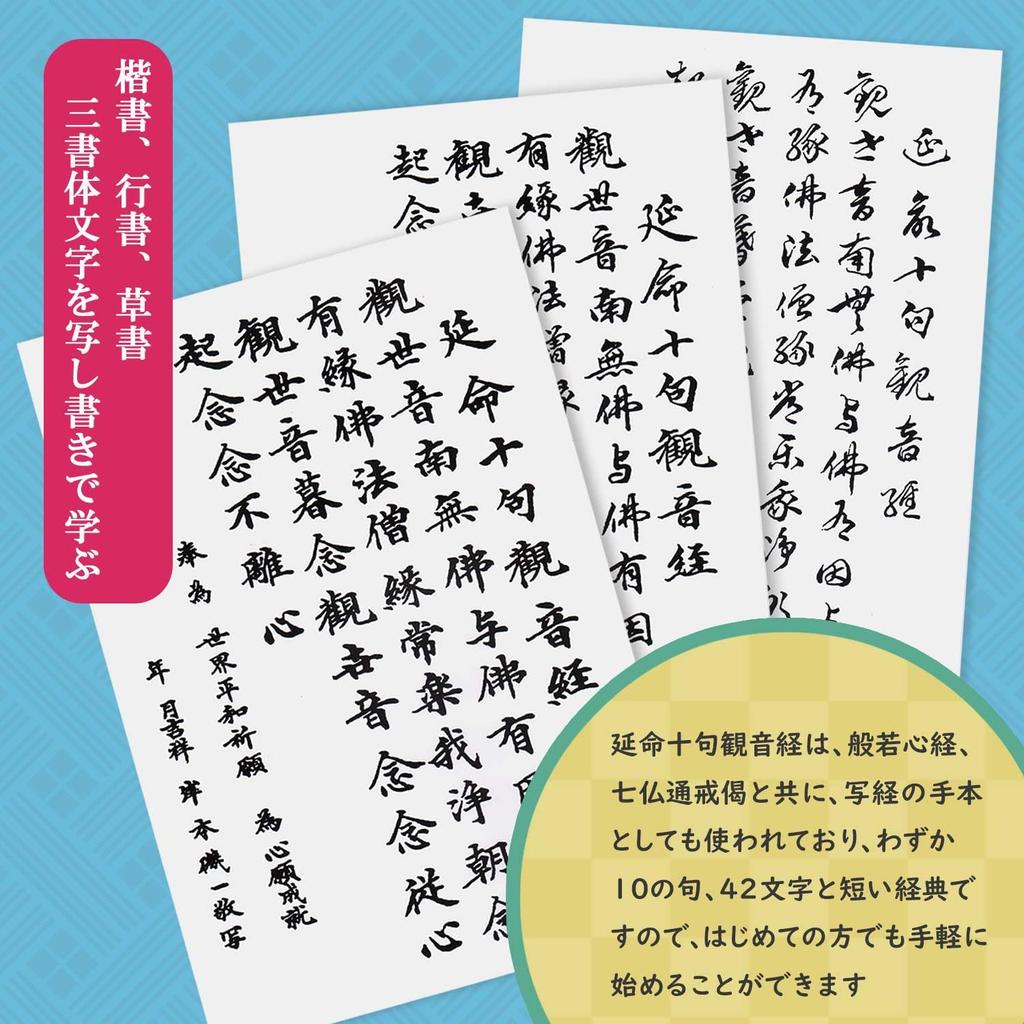 楷書、行書、草書
三書体文字を写し書きで学ぶ
延命十句観音経
観世音南無佛与佛有因与
有縁佛法僧縁常楽我浄
観世音暮念
起
延命十句観音経
觀世音南無佛与佛有因
有縁佛法僧縁
観世
起念
延命十句観音経
觀世音南無佛与佛有因
有縁佛法僧縁常楽我浄朝念
観世音暮念觀世音念念従心
起念念不離心
奉為 世界平和祈願 為心願成就
年 月吉祥 岸本磯一敬写
延命十句観音経は、般若心経、
七仏通戒偈と共に、写経の手本
としても使われており、わずか
10の句、42文字と短い経典で
すので、はじめての方でも手軽に
始めることができます